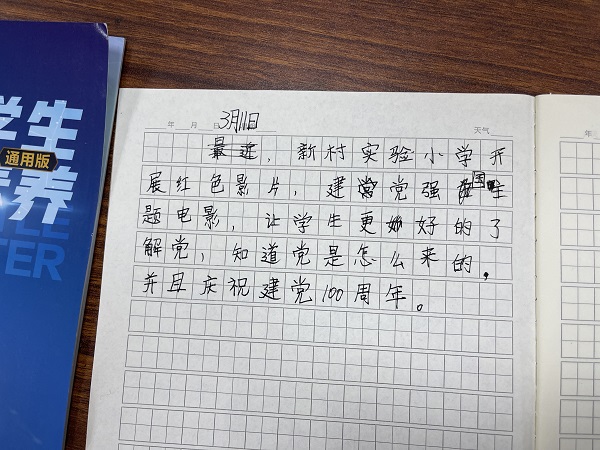 学生
通用版
素养
年 月 日 3月11日 天气
最近，新村实验小学开
展红色影片，建党强国主
题电影，让学生更好的了
解党，知道党是怎么来的，
并且庆祝建党100周年。
年